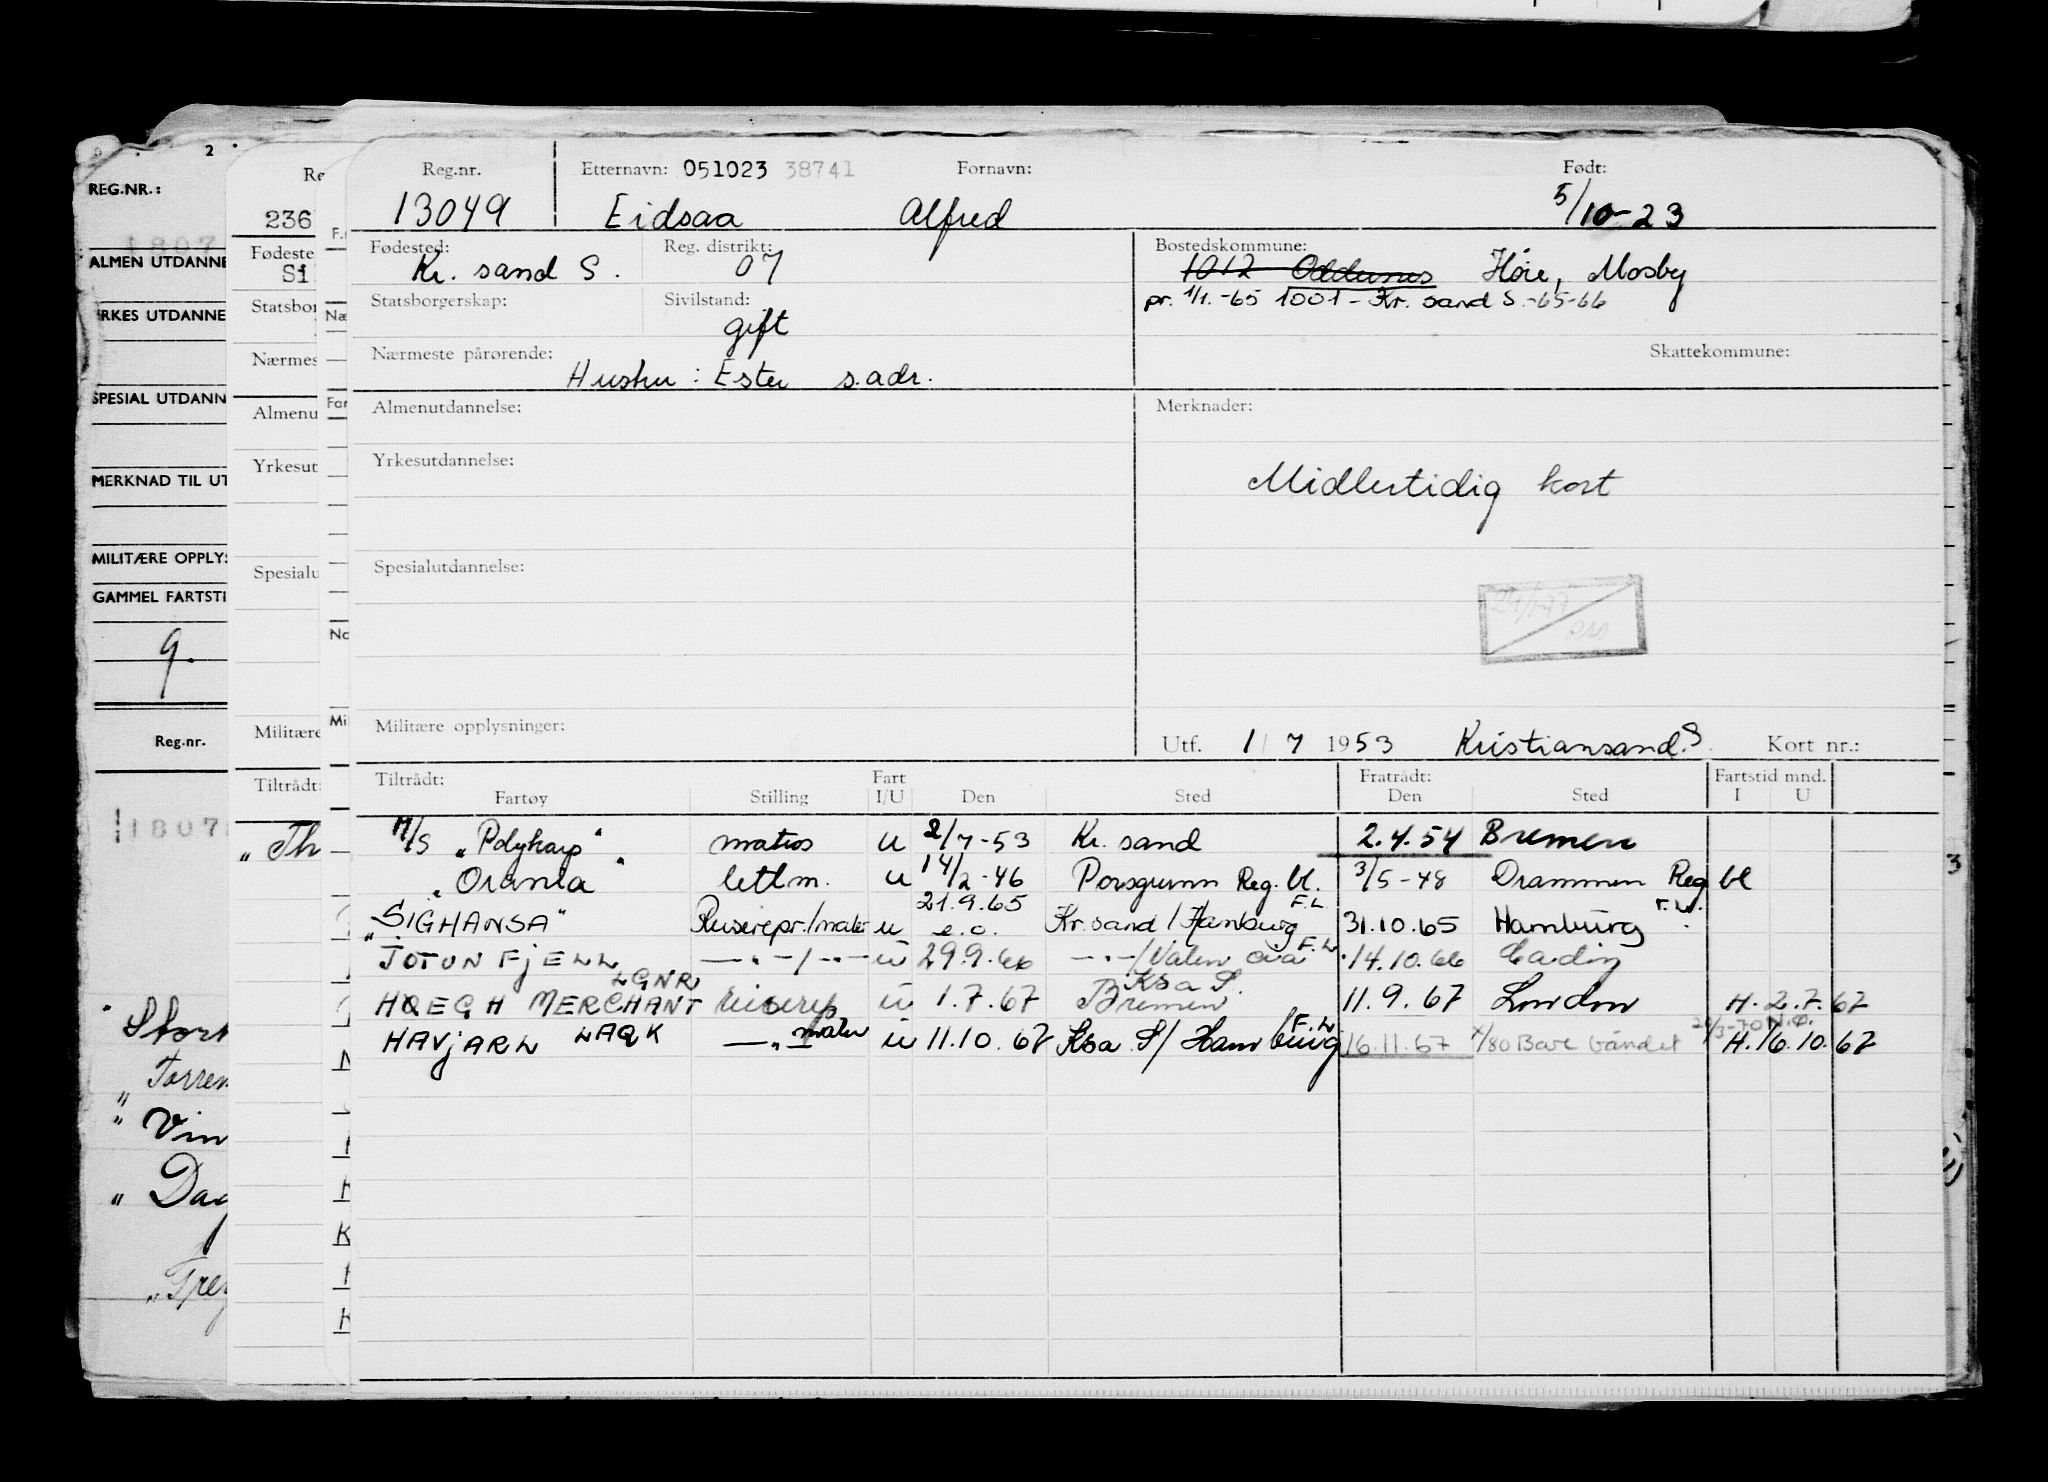 2
REG.NR.:
1807
ALMEN UTDANNE
YRKES UTDANNE
SPESIAL UTDANN
MERKNAD TIL UT
MILITÆRE OPPLYS
GAMMEL FARTSTI
9.
Reg.nr.
1807
Storr
Torren
" Vin
" Dag
Re
236
Fødeste
Si
Statsbor
Nærmes
Almenu
Yrkesut
Spesialu
Militære
Tiltrådt:
" Th
Næ
Far
Na
Mil
Reg.nr. Etternavn: 051023 38741 Fornavn: Født:
13049 Eidsaa Alfred 5/10-23
Fødested: Reg. distrikt: Bostedskommune:
Kr. sand S. 07 1012 Oddernes Høie, Mosby
Statsborgerskap: Sivilstand: pr. 1/1.-65 1001 - Kr. sand S.-65-66
gift
Nærmeste pårørende: Skattekommune:
Hustru : Ester s.adr.
Almenutdannelse: Merknader:
Yrkesutdannelse:
Midlertidig kort
Spesialutdannelse:
Militære opplysninger:
Utf. 1/7 1953 Kristiansand.S. Kort nr.:
Tiltrådt: Fart Fratrådt: Fartstid mnd.
Fartøy Stilling I/U Den Sted Den Sted I U
M/S „Polykarp" matros u 2/7-53 Kr. sand 2.4.54 Bremen
„Orania" lettm. u 14/2-46 Porsgrunn Reg. bl. 3/5-48 Drammen Reg bl
„SIGHANSA" Reiserepr./maler u 21.9.65 e.o. Kr.sand/Hamburg F.L. 31.10.65 Hamburg F.L.
JOTUNFJELL LGNR —"—/—"— u 29.9.66 —"—/Valencia F.L. 14.10.66 Cadiz
HOEGH MERCHANT reiserep u 1.7.67 Ksa S. Bremen 11.9.67 London H. 2.7.67
HAVJARL LAQK —"— maler u 11.10.67 Ksa S/Hamburg F.L. 16.11.67 H. 16.10.67
3